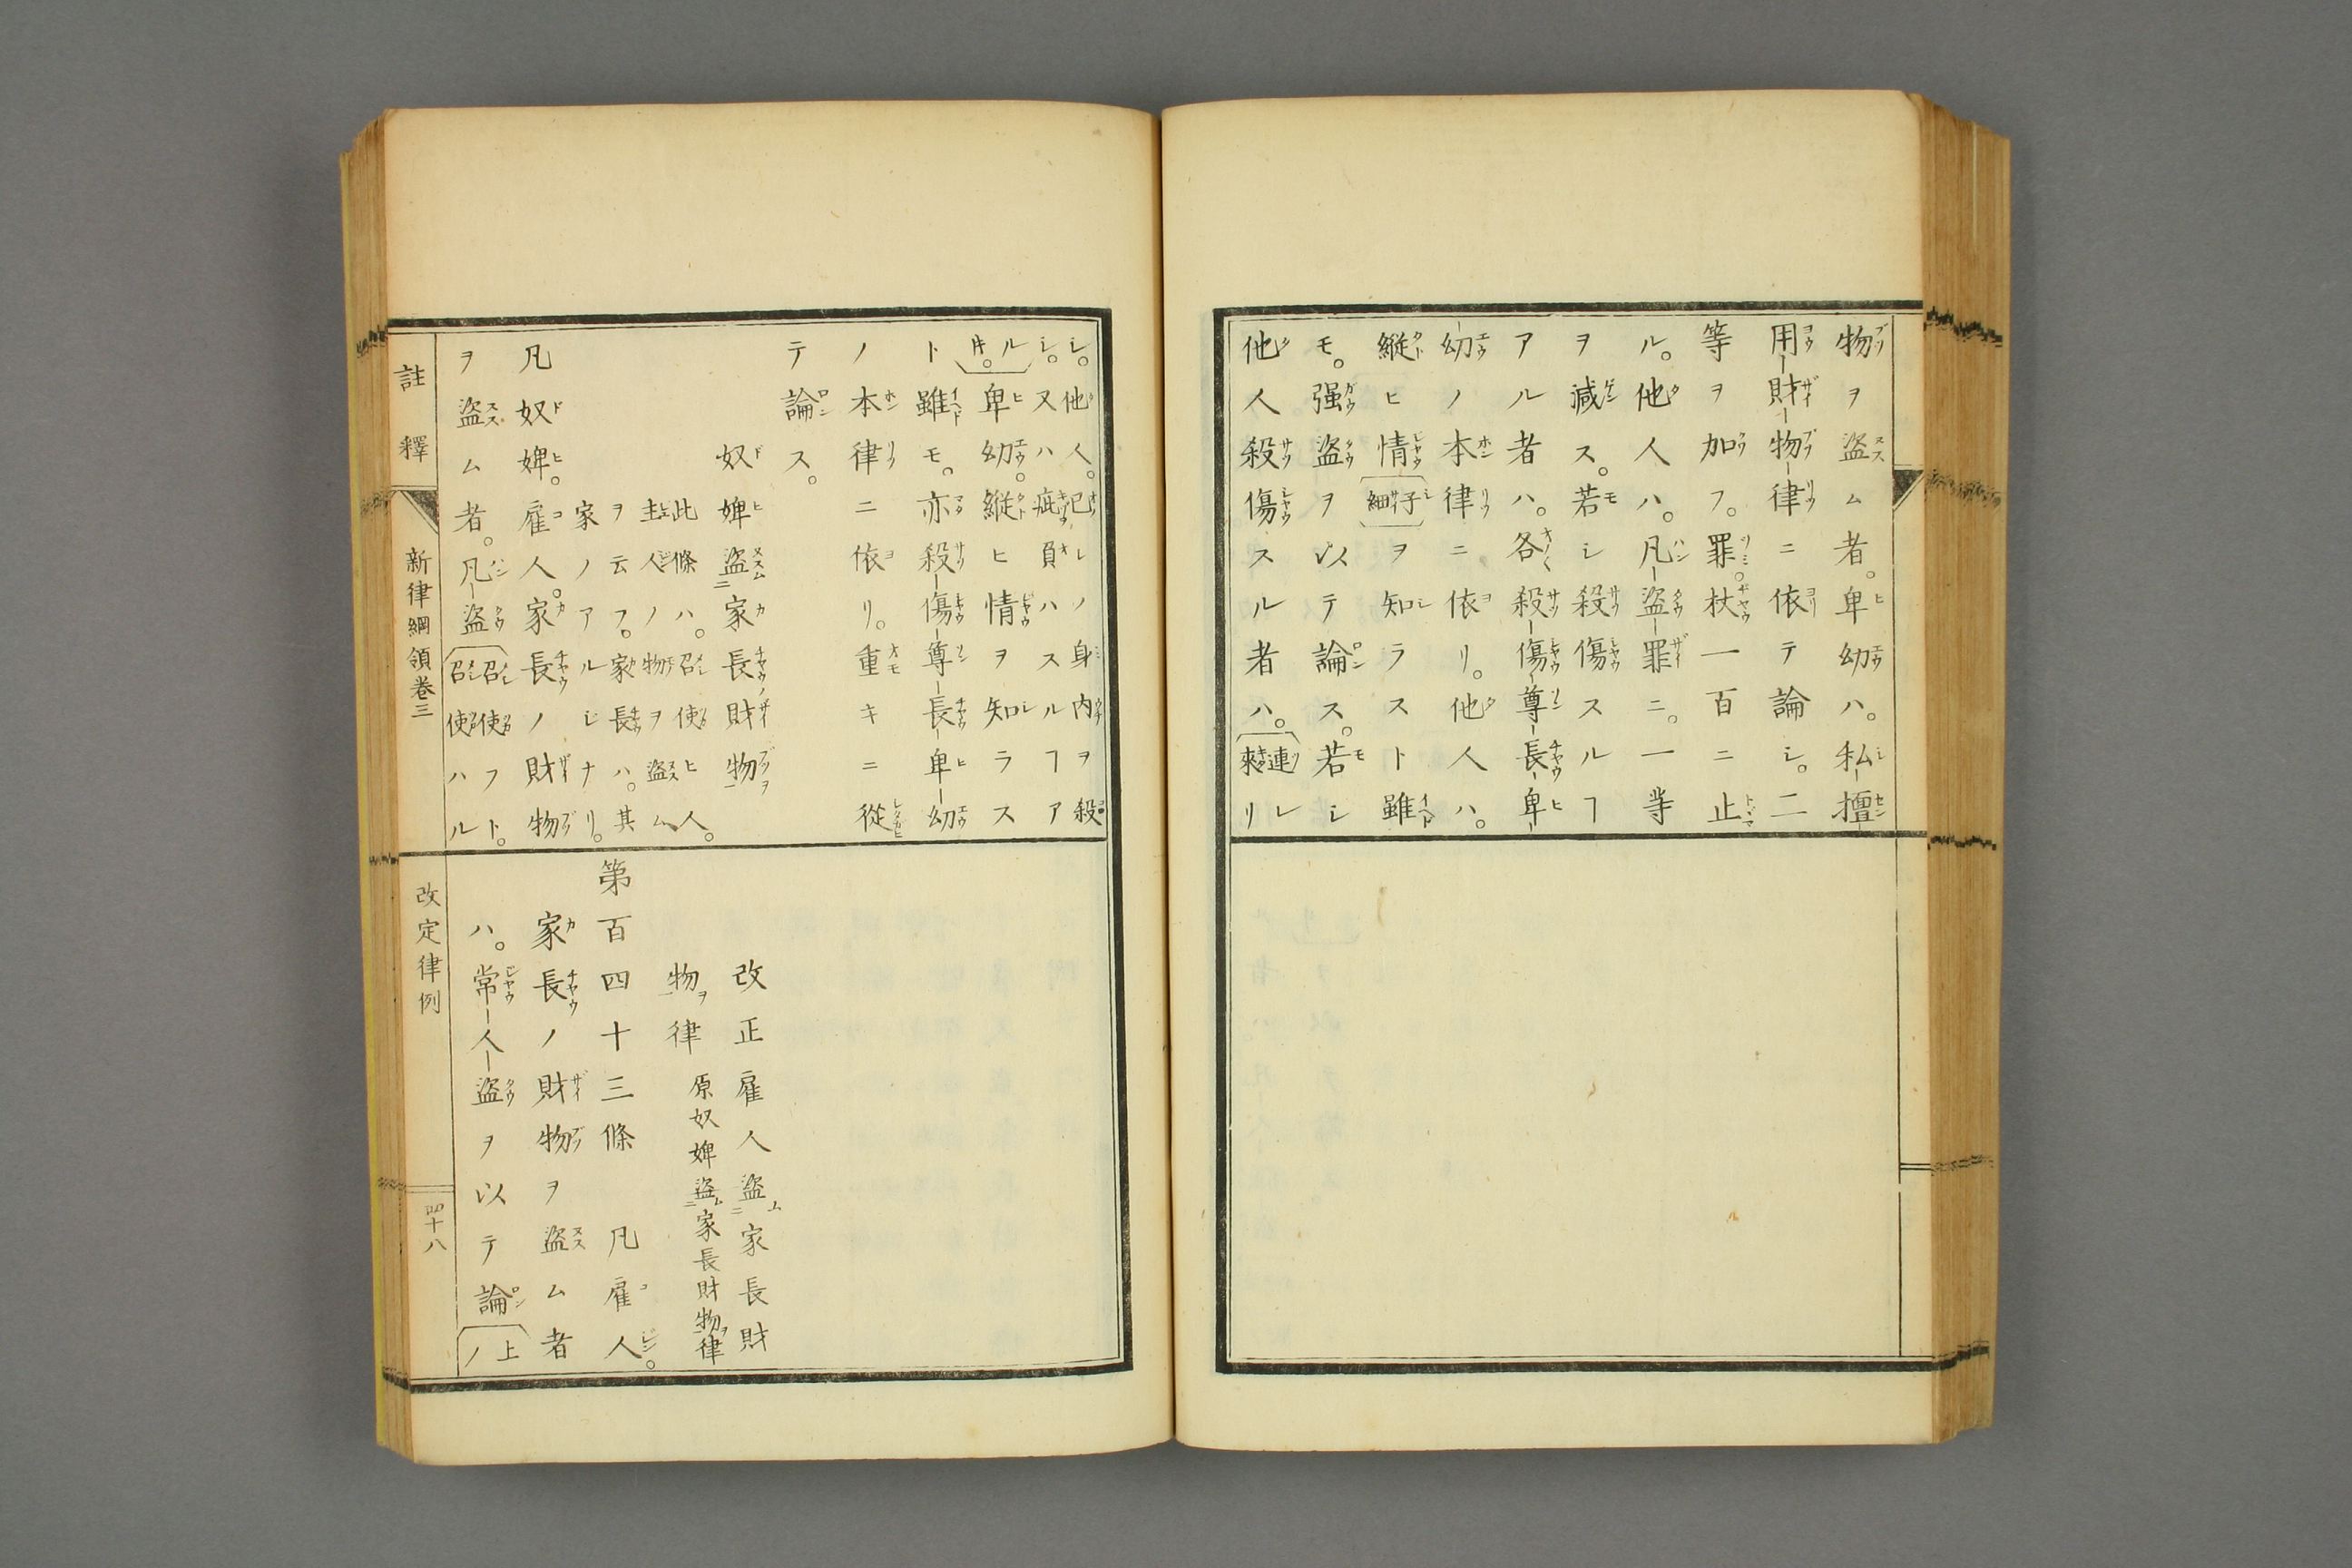 物ヲ盗ム者。卑幼ハ。私擅
用財物律ニ依テ論シ。二
等ヲ加フ。罪。杖一百ニ止
ル。他人ハ。凡盗罪ニ。一等
ヲ減ス。若シ殺傷スルヿ
アル者ハ。各殺傷尊長卑
幼ノ本律ニ依リ。他人ハ。
縦ヒ情(子細)ヲ知ラスト雖
モ。强盗ヲ以テ論ス。若シ
他人殺傷スル者ハ。(連レ來リ
シ。他人。己レノ身内ヲ殺
シ。又ハ疵負ハスルヿア
ル片。)卑幼。縦ヒ情ヲ知ラス
ト雖モ。亦殺傷尊長卑幼
ノ本律ニ依リ。重キニ從
テ論ス。
奴婢盗家長財物
此條ハ。召使ヒ人。
主人ノ物ヲ盗ム
ヲ云フ。家長ハ。其
家ノアルジナリ。
凡奴婢。雇人。家長ノ財物
ヲ盗ム者。凡盗(召使フト。
召使ハル
改正雇人盗ム家長財
物ヲ律 原奴婢盗ム家長財物ヲ律
第百四十三條 凡雇人。
家長ノ財物ヲ盗ム者
ハ。常人盗ヲ以テ論(上
ノ
註釋
新律綱領卷三
改定律例
四十八